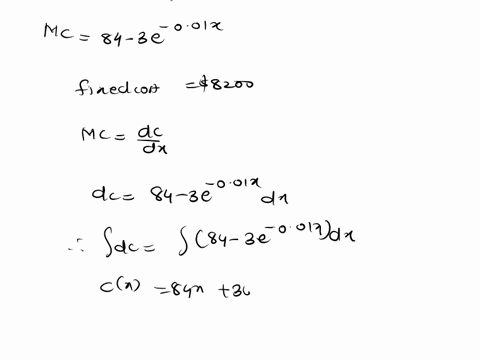 MC = 84-3e^{-0.01x}
fixed cost = $8200
MC = \frac{dc}{dx}
dc = 84-3e^{-0.01x} dx
∴ ∫dc = ∫(84-3e^{-0.01x})dx
c(x) = 84x +30